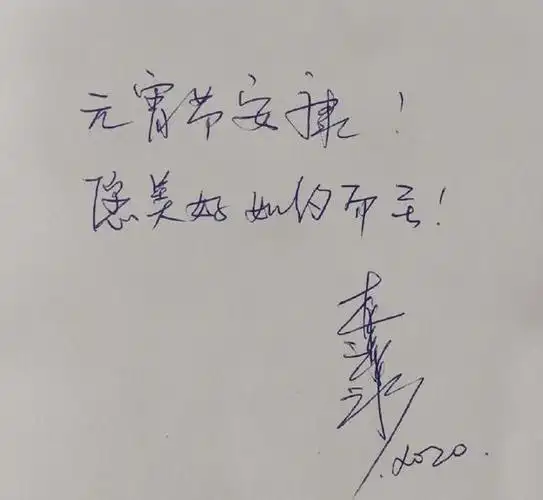 元宵节安康！
愿美好如约而至！
2020.